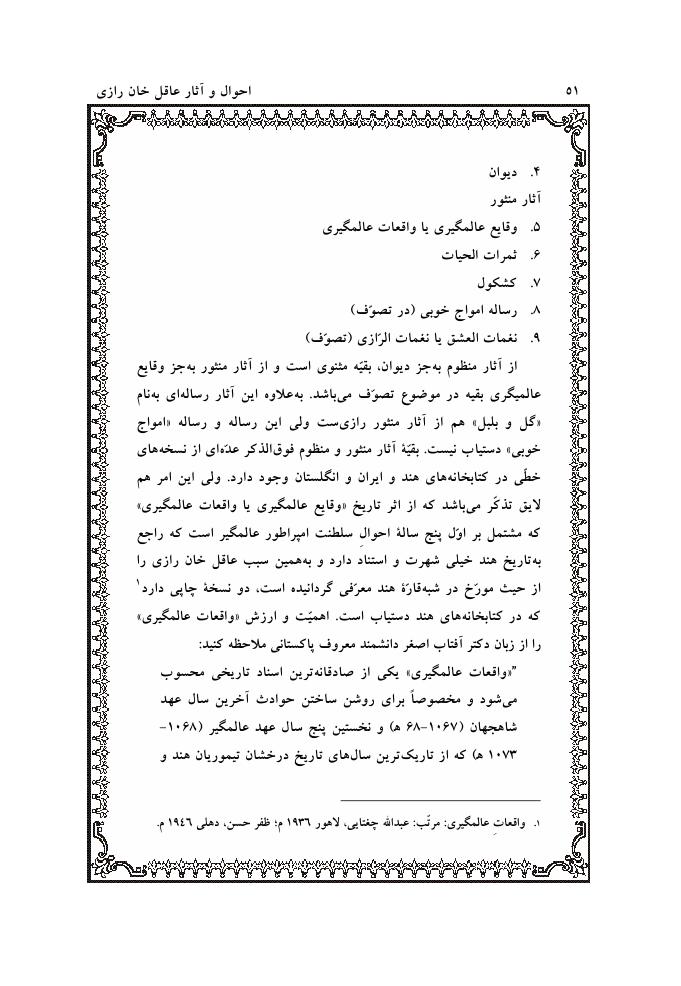 ۵۱ احوال و آثار عاقل خان رازی
۴. دیوان
آثار منثور
۵. وقایع عالمگیری یا واقعات عالمگیری
۶. ثمرات الحیات
۷. کشکول
۸. رساله امواج خوبی (در تصوّف)
۹. نغمات العشق یا نغمات الرّازی (تصوّف)
از آثار منظوم به‌جز دیوان، بقیّه مثنوی است و از آثار منثور به‌جز وقایع
عالمیگری بقیه در موضوع تصوّف می‌باشد. به‌علاوه این آثار رساله‌ای به‌نام
«گل و بلبل» هم از آثار منثور رازی‌ست ولی این رساله و رساله «امواج
خوبی» دستیاب نیست. بقیّهٔ آثار منثور و منظوم فوق‌الذکر عدّه‌ای از نسخه‌های
خطّی در کتابخانه‌های هند و ایران و انگلستان وجود دارد. ولی این امر هم
لایق تذکّر می‌باشد که از اثر تاریخ «وقایع عالمگیری یا واقعات عالمگیری»
که مشتمل بر اوّل پنج سالهٔ احوالِ سلطنت امپراطور عالمگیر است که راجع
به‌تاریخ هند خیلی شهرت و استناد دارد و به‌همین سبب عاقل خان رازی را
از حیث مورّخ در شبه‌قارّهٔ هند معرّفی گردانیده است، دو نسخهٔ چاپی دارد۱
که در کتابخانه‌های هند دستیاب است. اهمیّت و ارزش «واقعات عالمگیری»
را از زبان دکتر آفتاب اصغر دانشمند معروف پاکستانی ملاحظه کنید:
”«واقعات عالمگیری» یکی از صادقانه‌ترین اسناد تاریخی محسوب
می‌شود و مخصوصاً برای روشن ساختن حوادث آخرین سال عهد
شاهجهان (۱۰۶۷-۶۸ ه‍) و نخستین پنج سال عهد عالمگیر (۱۰۶۸-
۱۰۷۳ ه‍) که از تاریک‌ترین سال‌های تاریخ درخشان تیموریان هند و
۱. واقعاتِ عالمگیری: مرتّب: عبدالله چغتایی، لاهور ۱۹۳۶ م؛ ظفر حسن، دهلی ۱۹۴۶ م.